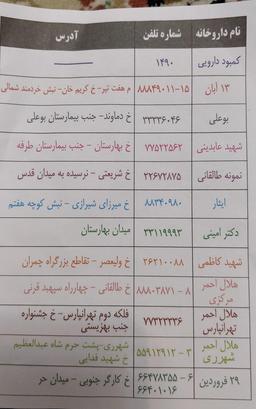 نام داروخانه شماره تلفن آدرس
کمبود دارویی ۱۴۹۰
۱۳ آبان ۸۸۸۴۹۰۱۱-۱۵ م هفت تیر- خ کریم خان- نبش خردمند شمالی
بوعلی ۳۳۳۳۶۰۴۶ خ دماوند- جنب بیمارستان بوعلی
شهید عابدینی ۷۷۵۲۲۵۶۲ خ بهارستان - جنب بیمارستان طرفه
نمونه طالقانی ۲۲۶۷۲۸۷۵ خ شریعتی - نرسیده به میدان قدس
ایثار ۸۸۳۴۰۹۸۰ خ میرزای شیرازی - نبش کوچه هفتم
دکتر امینی ۳۳۱۱۹۹۹۳ میدان بهارستان
شهید کاظمی ۲۶۲۱۰۰۸۸ خ ولیعصر - تقاطع بزرگراه چمران
هلال احمر
مرکزی ۸۸۸۰۳۸۷۱ - ۸ خ طالقانی - چهارراه سپهبد قرنی
هلال احمر
تهرانپارس ۷۷۳۳۳۳۳۶ فلکه دوم تهرانپارس- خ جشنواره
جنب بهزیستی
هلال احمر
شهرری ۵۵۹۱۲۹۱۲ - ۳ شهرری-پشت حرم شاه عبدالعظیم
خ شهید فدایی
۲۹ فروردین ۶۶۴۷۸۳۵۵ - ۶ خ کارگر جنوبی - میدان حر
۶۶۴۰۱۰۱۶